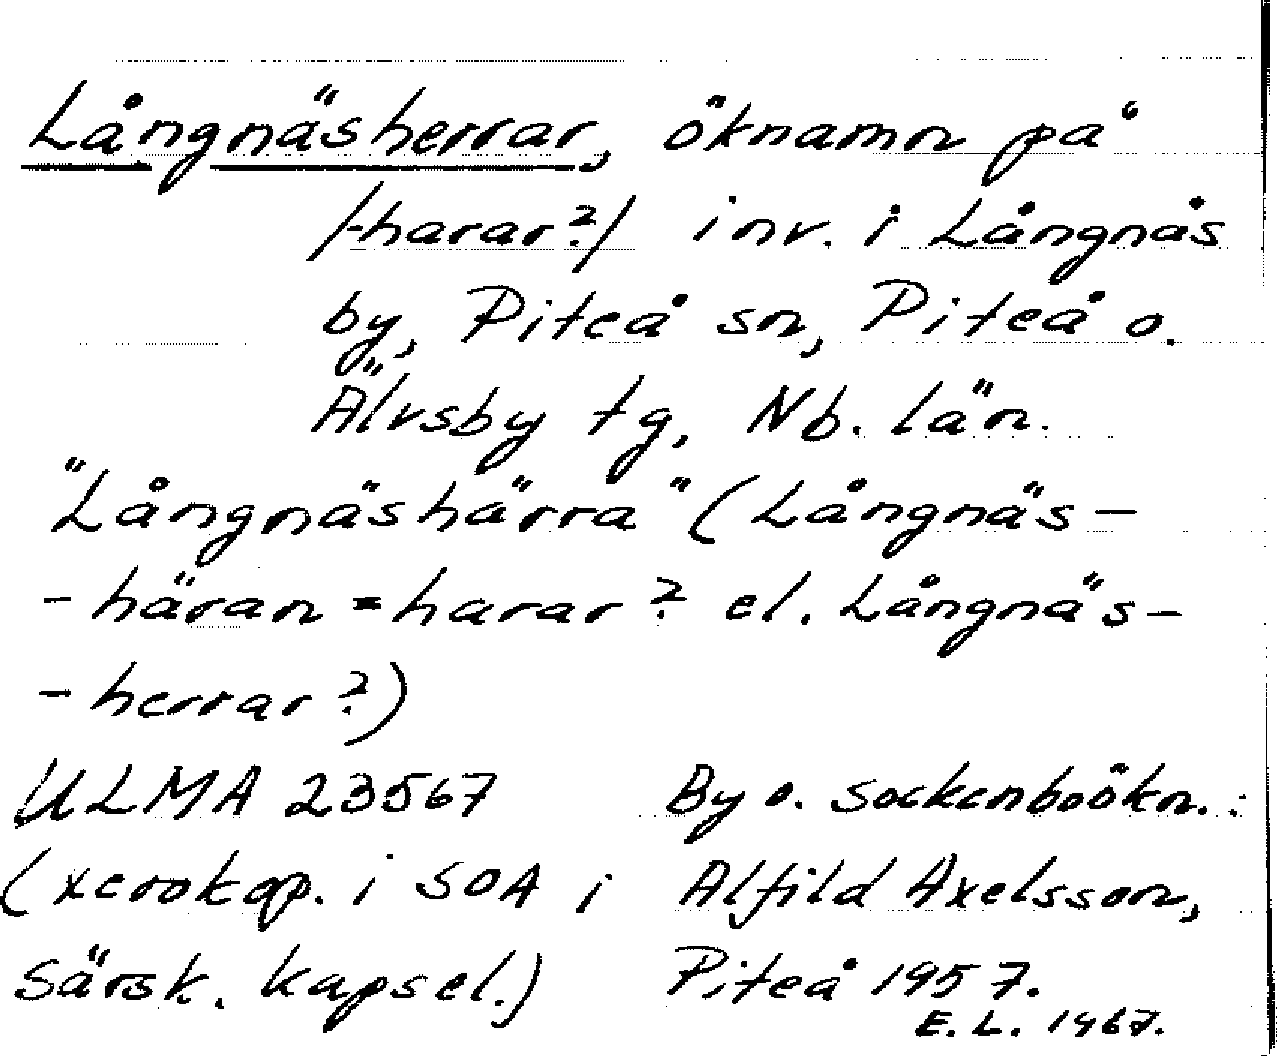 Långnäsherrar, öknamn på
/-harar?/ inv. i Långnäs
by, Piteå sn, Piteå o.
Älvsby tg, Nb. län.
"Långnäshärra" (Långnäs-
-häran = harar? el. Långnäs-
-herrar?)
ULMA 23567 By o. sockenboökn.:
(xerokop. i SOA i Alfild Axelsson,
särsk. kapsel.) Piteå 1957.
E. L. 1967.